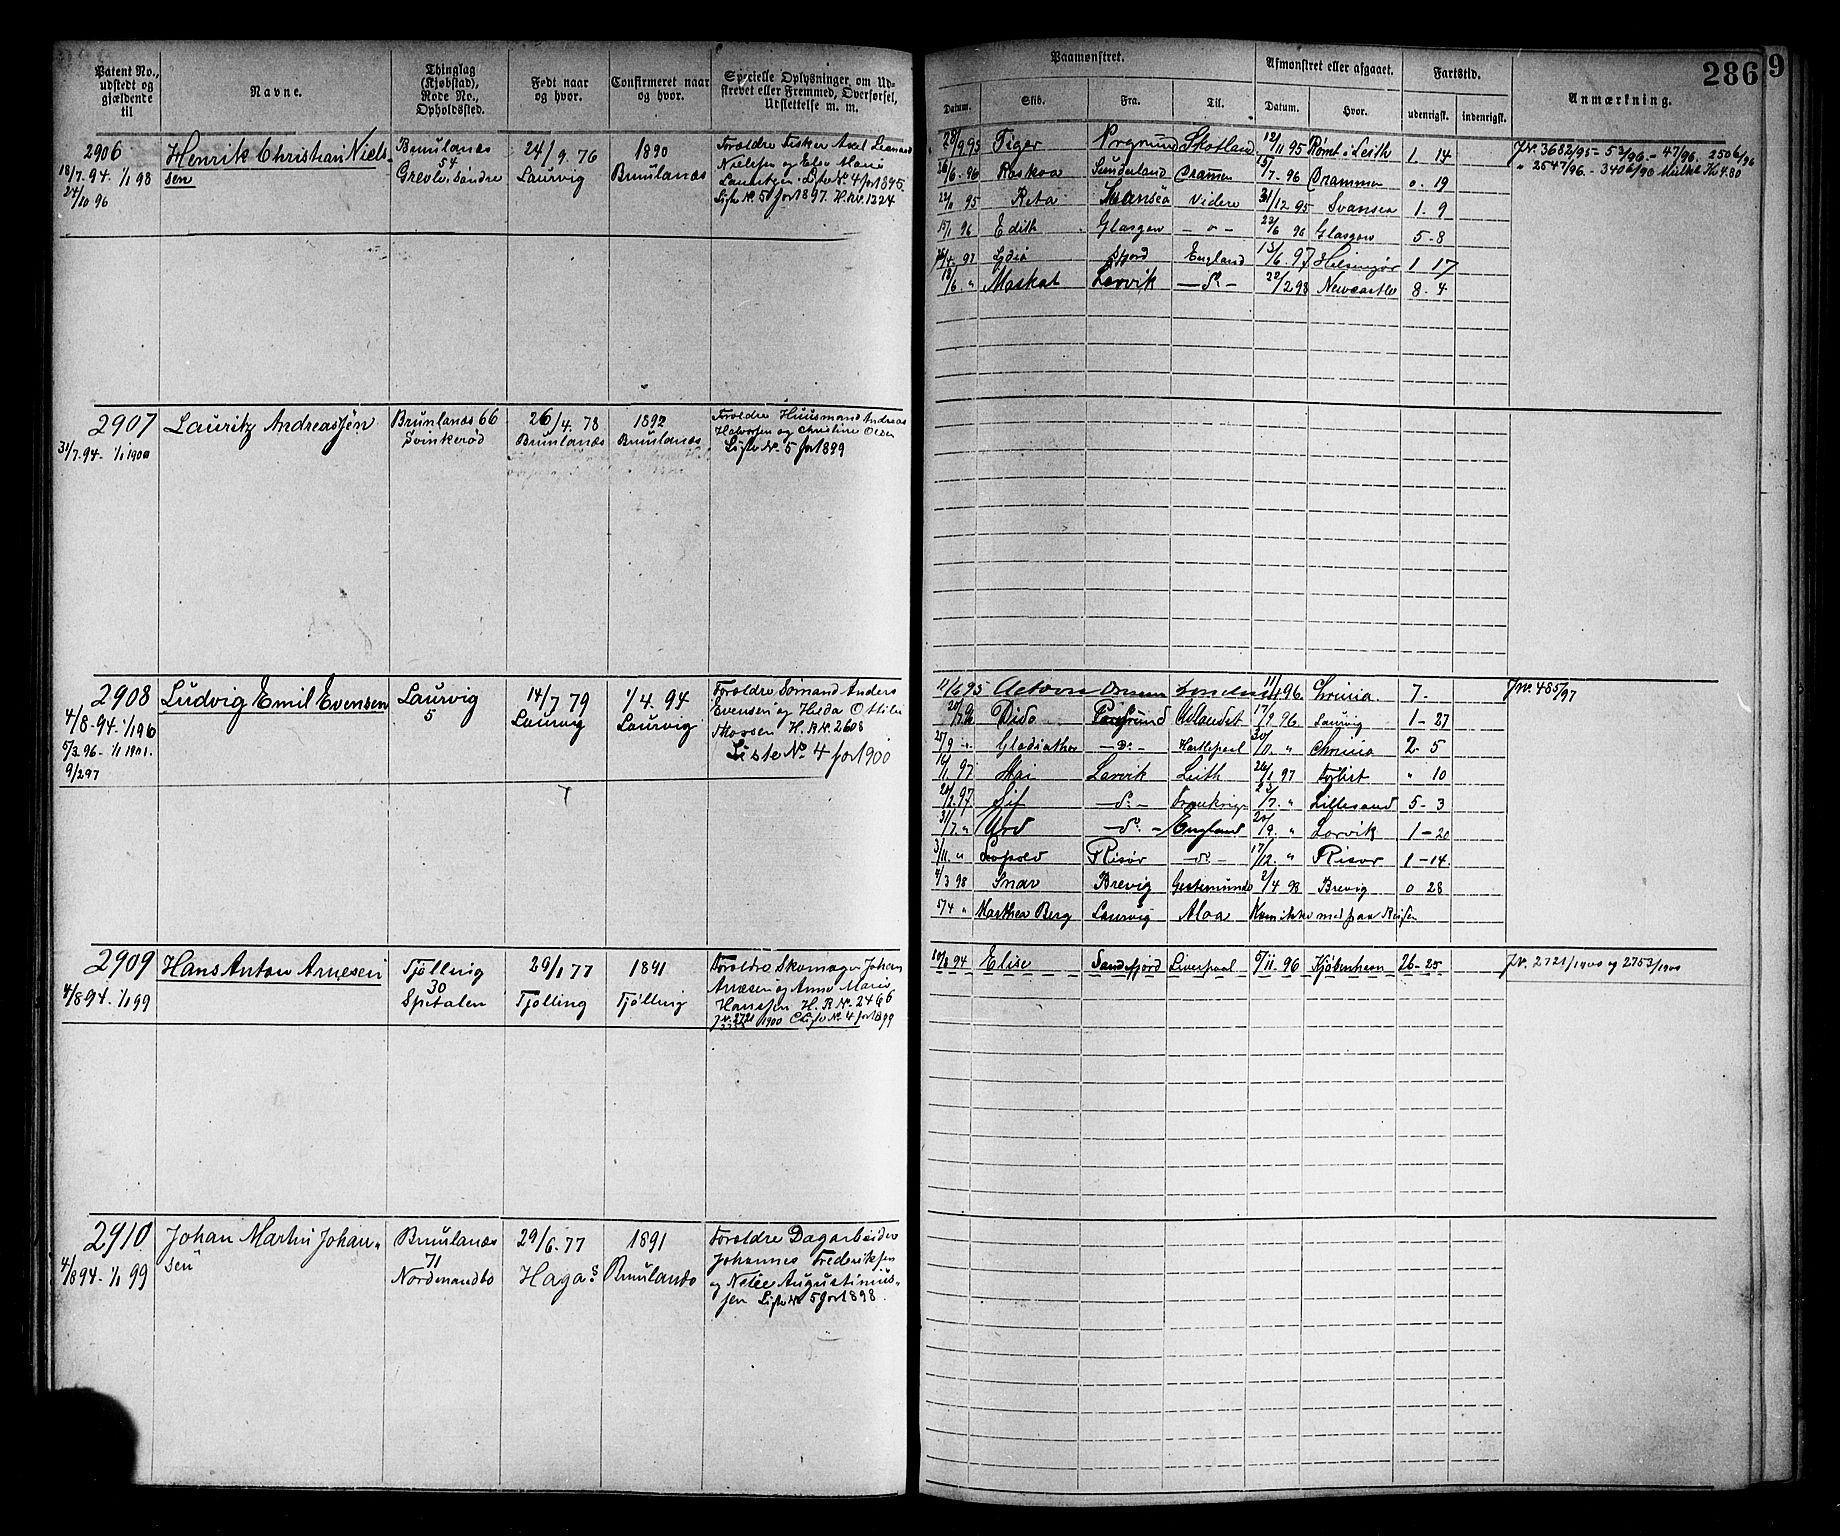 286 9
Patent No., udstedt og gjældende til
Navne.
Thinglag (Kjøbstad), Rode No., Opholdssted.
Født naar og hvor.
Confirmeret naar og hvor.
Specielle Oplysninger om Udskrevet eller Fremmed, Overførsel, Udslettelse m. m.
Paamønstret.
Afmønstret eller afgaaet.
Fartstid.
Anmærkning.
Datum. Skib. Fra. Til. Datum. Hvor. udenrigsk. indenrigsk.
2906 Henrik Christian Niel-
sen
18/7. 94. 1/1 98
24/10 96
Brunlanæs
54
Grevle søndre
24/9. 76
Laurvig
1890
Brunlanæs
Forældre Fisker Axel Leonard
Nielsen og Elev Marie
Lauritzen. Liste No. 4 for 1895.
Liste No. 5 for 1897. H. No. 1224
28/9 95 Tiger Porsgrund Skotland 12/11 95 Rømt i Leith 1 14
26/6. 96 Roskva Sunderland Drammen 15/7. 96 Drammen 0. 19
22/11 95 Reta Svansea videre 31/12 95 Svansea 1. 9
15/1 96 Edith Glasgow — " — 23/6 96 Glasgow 5-8
97 Lydia Fjord England 13/6. 97 Helsingør 1 17
18/6. " Maskat Larvik — do — 22/2 98 Newcastle 8. 4
JNr. 3682/95 - 53/96 - 47/96. 2506/96
" 2547/96. - 3406/96 Mulkt Kr 4.80
2907 Lauritz Andreassen
31/7. 94. 1/1 1900
Brunlanæs 66
Svinkerød
26/4. 78
Brunlanæs
1892
Brunlanæs
Forældre Huusmand Andreas
Halvorsen og Christine Olsen
Liste No. 5 for 1899
2908 Ludvig Emil Evensen
4/8-94. 1/1 96
5/3 96. 1/1 1901.
9/2 97
Laurvig
5
14/7 79
Laurvig
1/4. 94
Laurvig
Forældre Sømand Anders
Evensen og Hilda Ottilie
Thorsen H. R No. 2608
Liste No. 4 for 1900
11/6 95 London 96. Chrinia 7.
Dido Porsgrund 17/9. 96. Laurvig 1-27
25/9 " Gladiather — Do — Hartlepool 30/10. " Chrinia 2-5
16/1 97 Mai Larvik Leith 26/1 97 " 10
97 Sif — do — Frankrig 23/7. " Lillesand 5-3
31/7. " Urd — do — England 20/9. " Larvik 1-20
3/11. " Leopold Risør — do — 17/12. " Risør 1-14.
4/3 98 Snar Brevig Gestemünde 2/4 98 Brevig 0 28
5/4 " Marthea Berg Laurvig Aloa Kom ikke med paa Reisen
JNr. 485/97
2909 Hans Anton Arnesen
4/8 94. 1/1 99
Tjølling
30
Spitalen
29/1 77
Tjølling
1891
Tjølling
Forældre Skomager Johan
Arnesen og Anne Marie
Hanssen H. R No. 2466
JNr. 2721 1900 Liste No 4 for 1899
10/8 94 Elise Sandefjord Liverpool 5/11 96 Kjøbenhavn 26-25
JNr. 2721/1900 og 2753/1900
2910 Johan Martin Johan-
sen
4/8 94. 1/1 99
Brunlanæs
71
Nordmandbo
29/6. 77
Hagas
1891
Brunlanæs
Forældre Dagarbeider
Johannes Frederiksen
og Nelie Augustinus-
sen Liste No 5 for 1898.